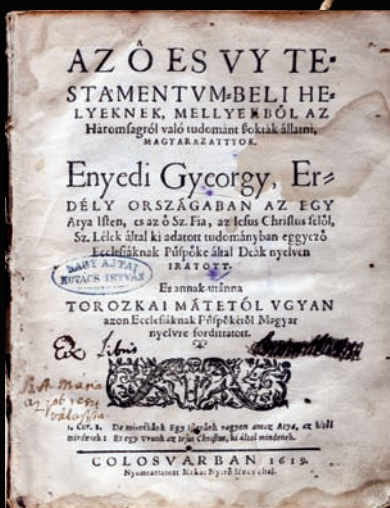 AZ Ó ES VY TE-
STAMENTVM-BELI HE-
LYEKNEK, MELLYEKBÓL AZ
Háromſagról való tudománt ſzokták állatni,
MAGYARAZATTYOK.
Enyedi Gyeorgy, Er-
DÉLY ORSZÁGABAN AZ EGY
Atya Iſten, es az ő Sz. Fia, az Ieſus Chriſtus felöl,
Sz. Lélek által ki adatott tudományban eggyező
Eccleſiáknak Püſpöke által Deák nyelven
IRATOTT.
Es annak-utánna
TOROZKAI MÁTETÓL VGYAN
azon Eccleſiáknak Püſpökétöl Magyar
nyelvre fordittatott.
NAGY AJTAI
KOVÁCS ISTVÁN
Ex Libris
1. Cor. 8. De minékünk Egy Iſtenünk vagyon amaz Atya, az kitöl
mindenek: Es egy Vrunk az Ieſus Chriſtus, ki által mindenek.
COLOSVARBAN 1619.